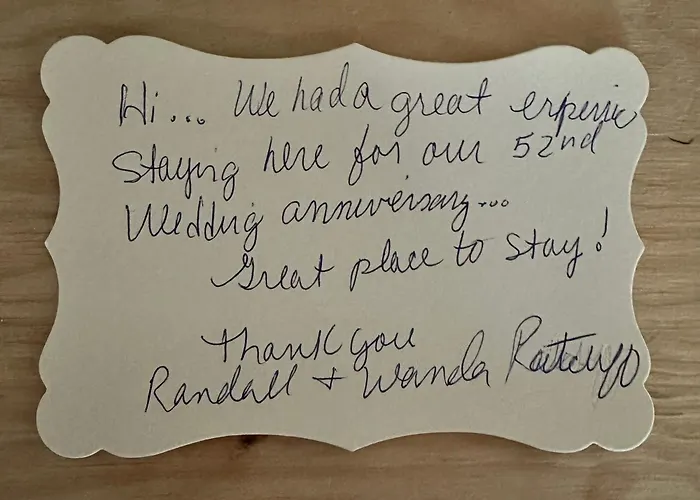 Hi... We had a great
Staying here for our 52nd
Wedding anniversary...
Great place to stay!
Thank you
Randall + Wanda